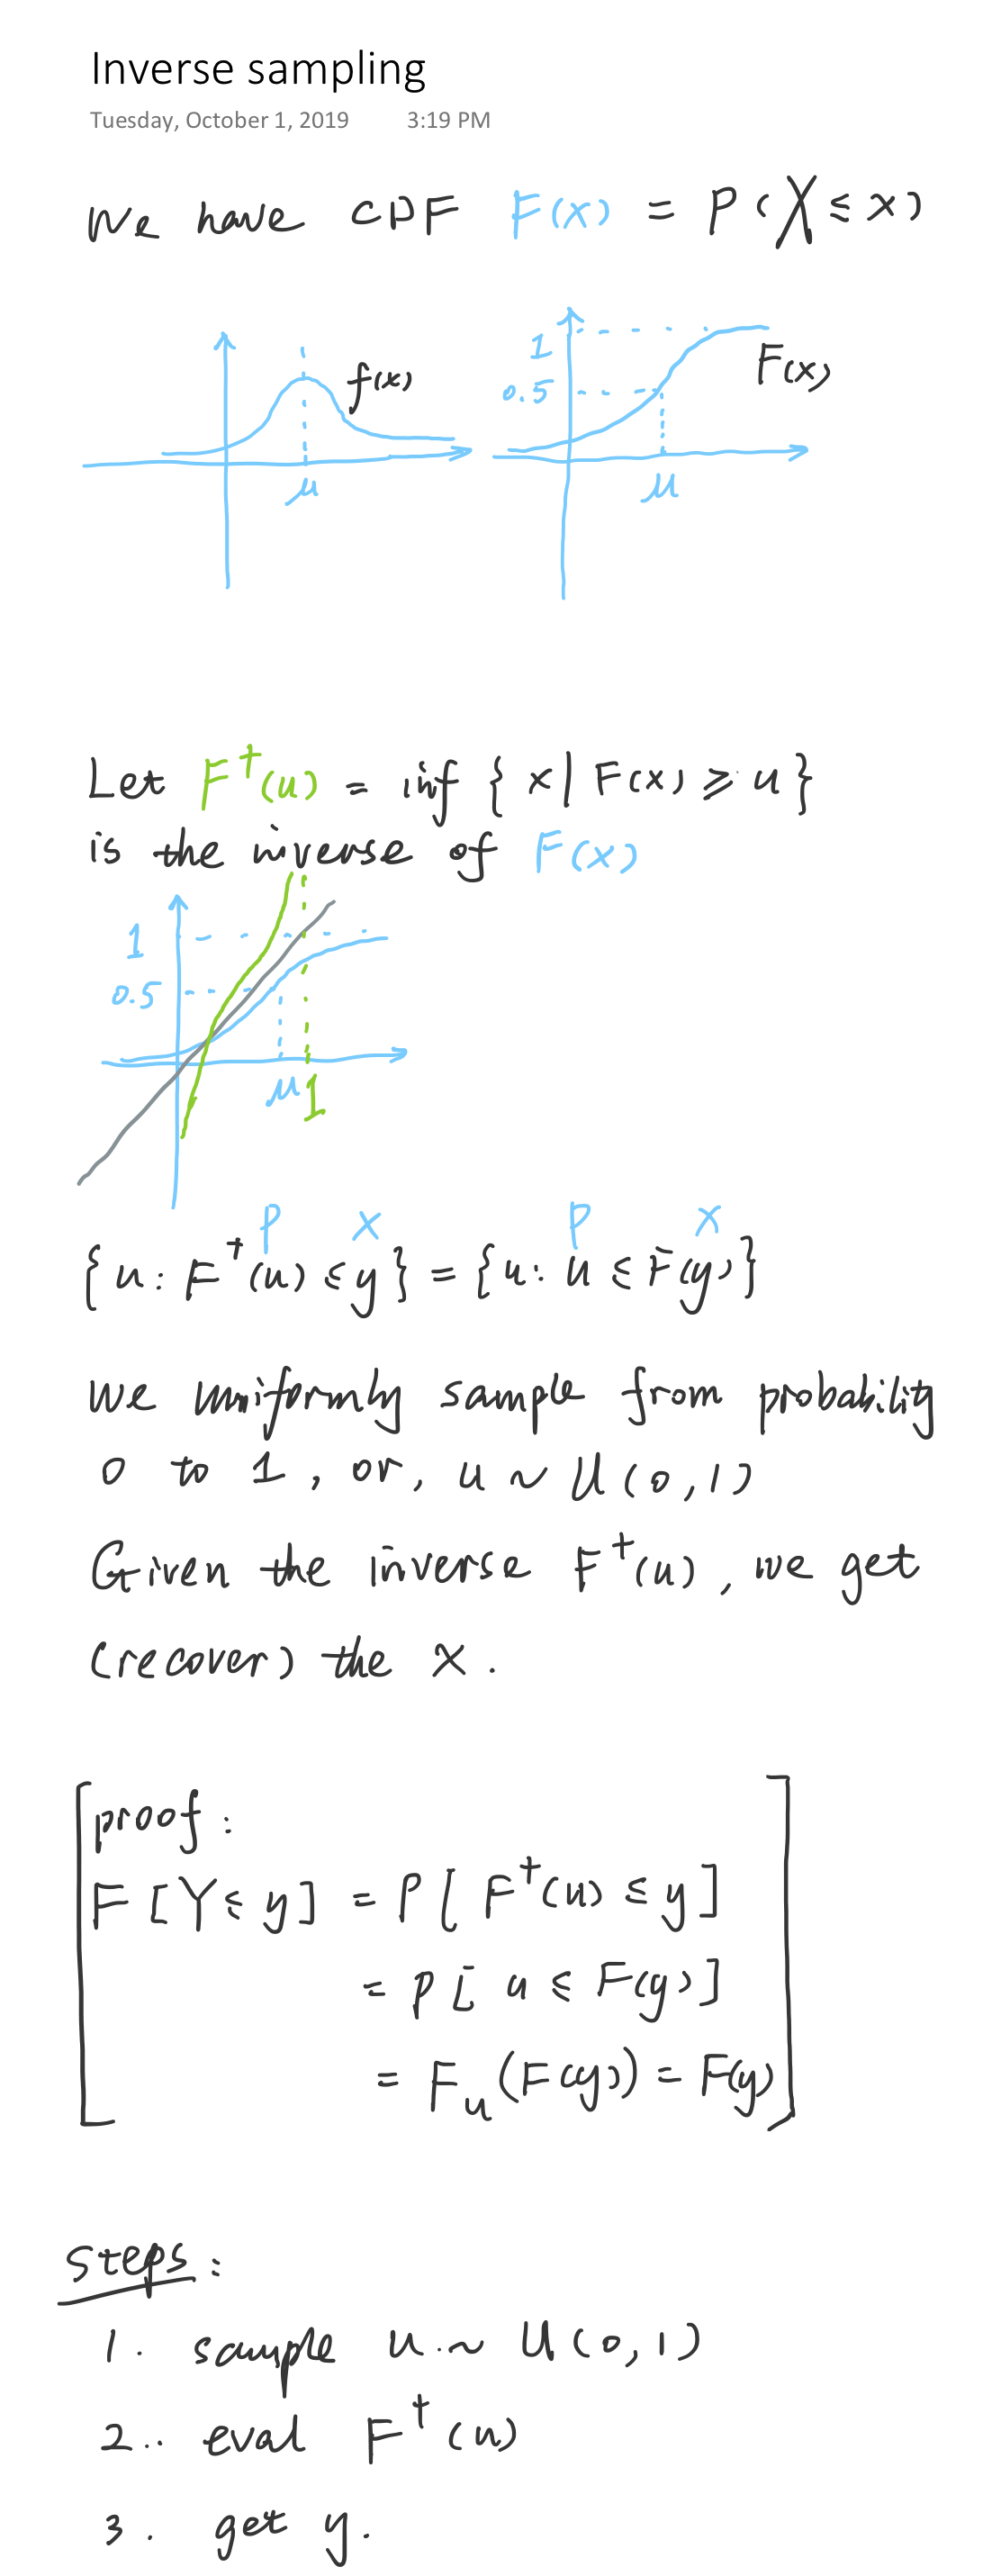 Inverse sampling
Tuesday, October 1, 2019 3:19 PM
We have CDF F(x) = P(X ≤ x)
f(x)
μ
1
0.5
F(x)
μ
Let F†(u) = inf { x | F(x) ≥ u }
is the inverse of F(x)
1
0.5
μ 1
P x P x
{ u : F†(u) ≤ y } = { u : u ≤ F(y) }
We uniformly sample from probability
0 to 1, or, u ~ U(0,1)
Given the inverse F†(u), we get
(recover) the x.
proof:
F[Y ≤ y] = P[F†(u) ≤ y]
= P[u ≤ F(y)]
= Fu(F(y)) = F(y)
Steps:
1. sample u ~ U(0,1)
2.. eval F†(u)
3. get y.